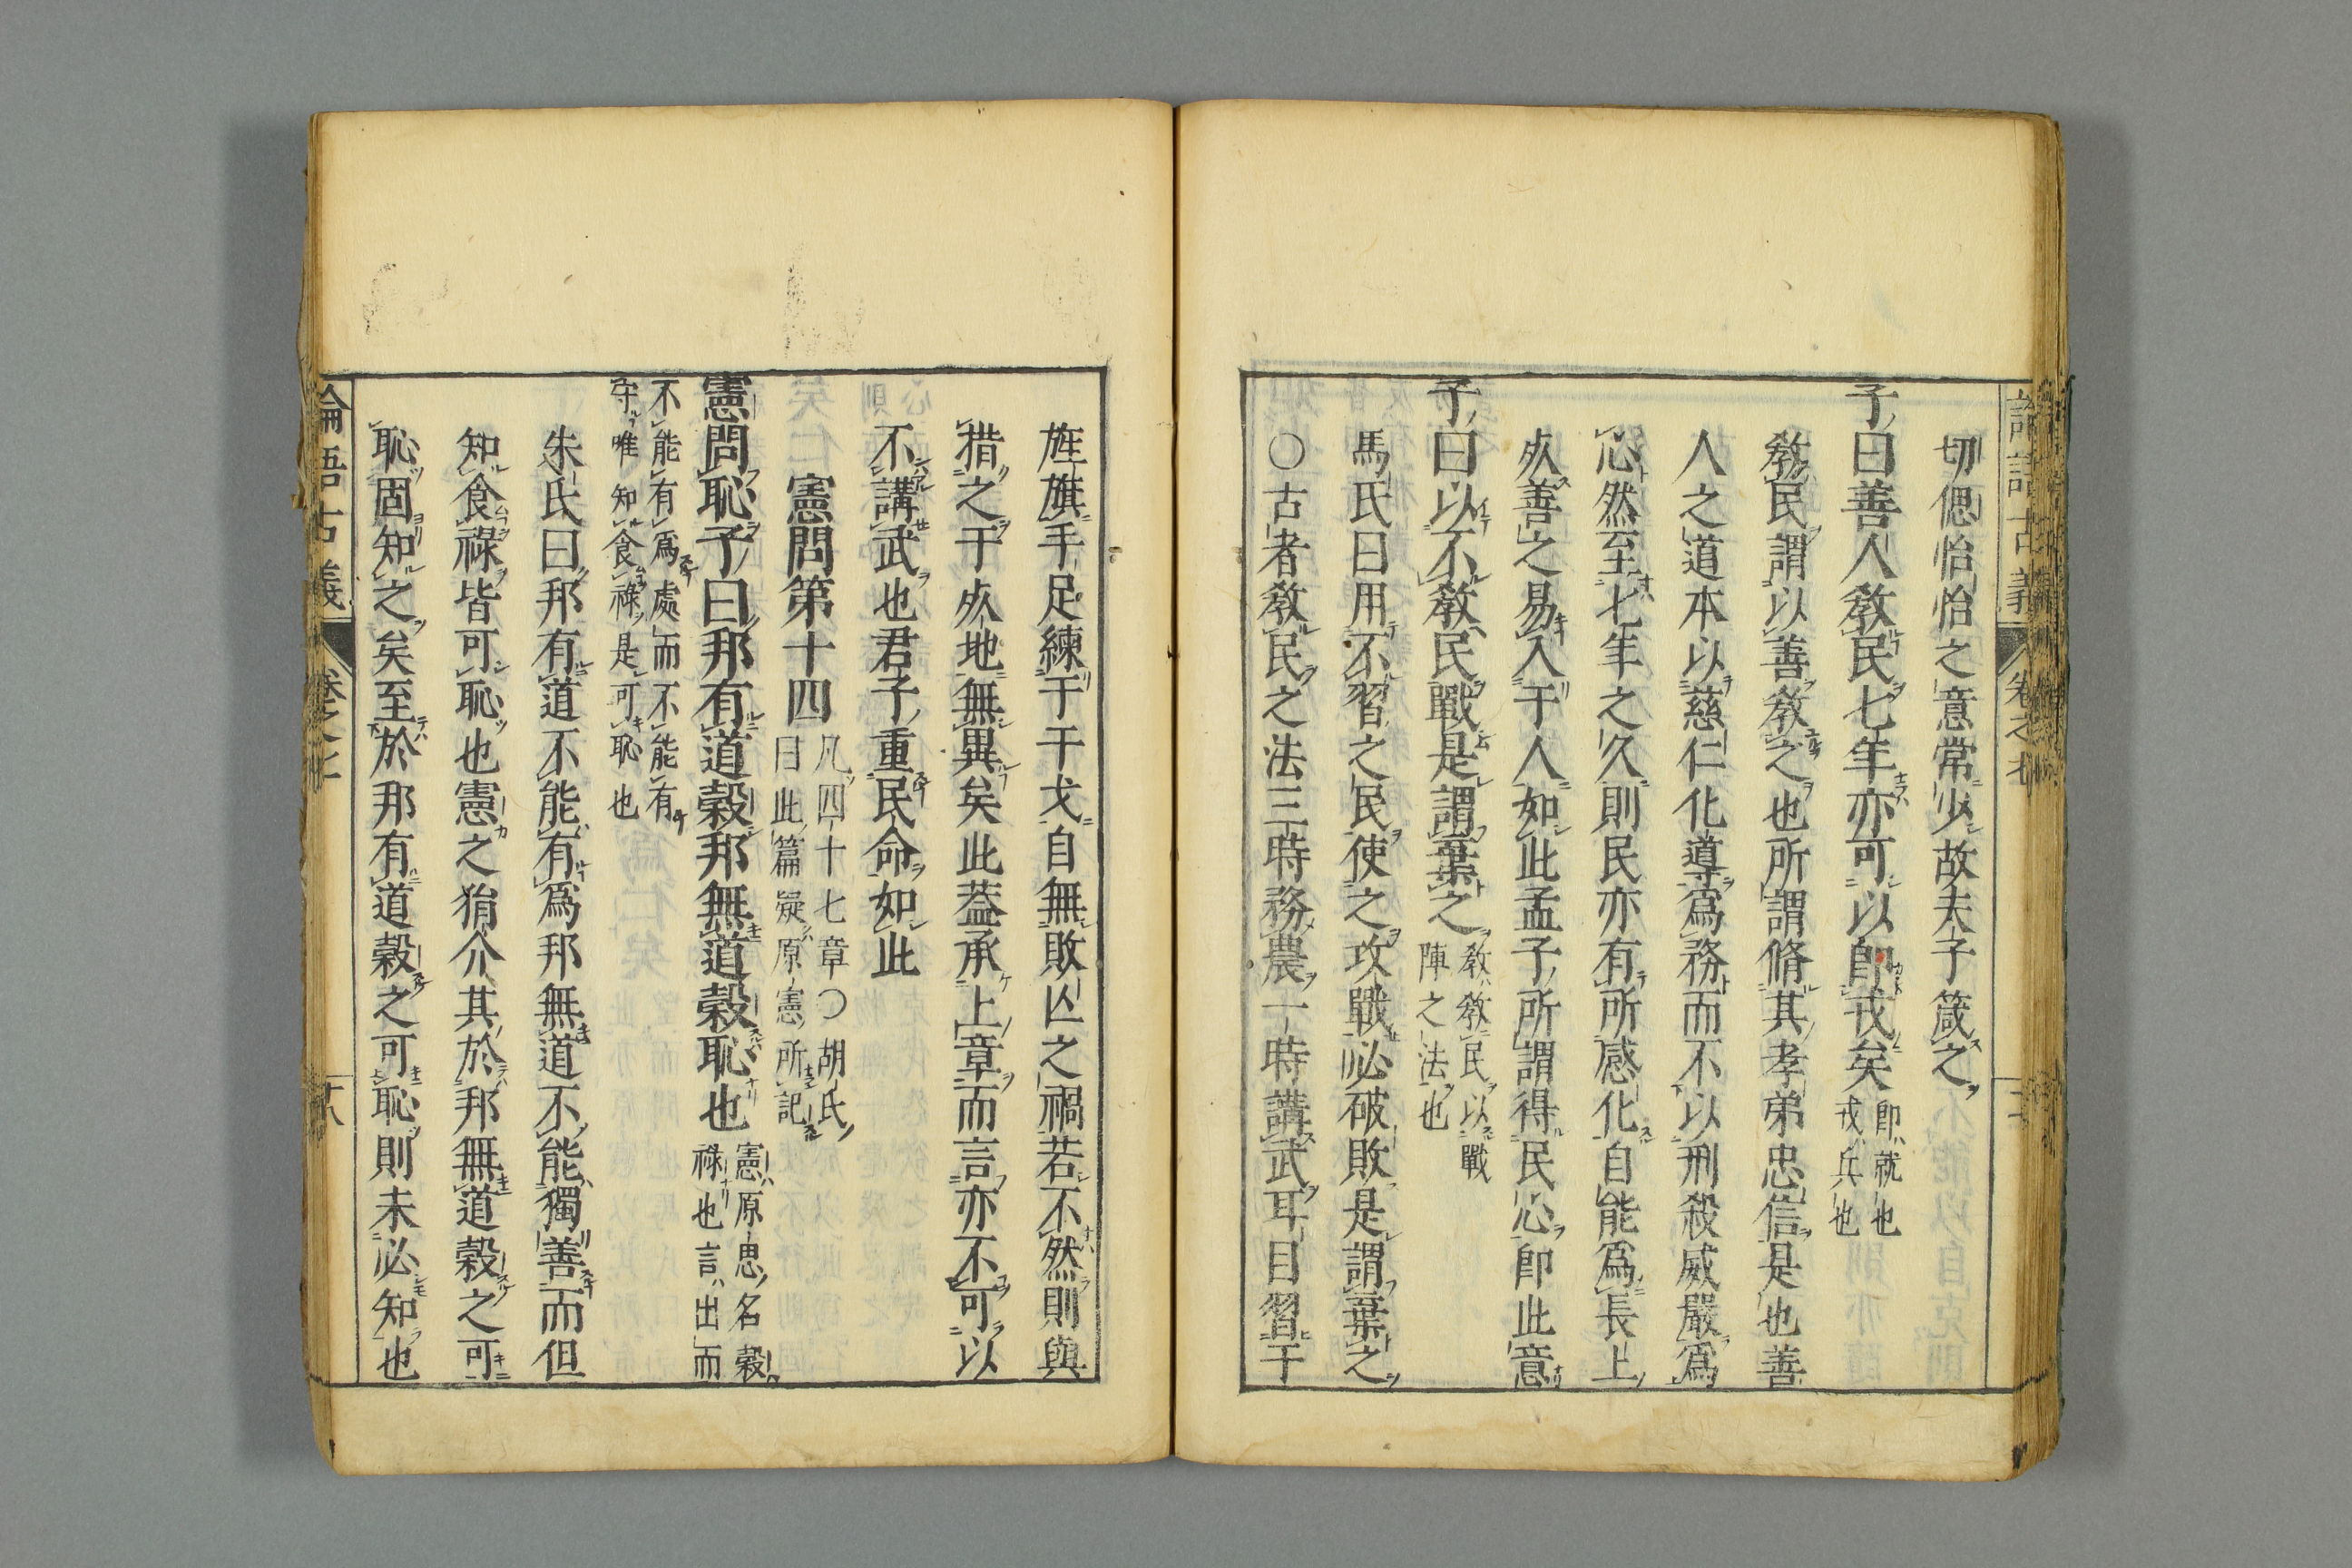 論語古義 卷之七
切偲怡怡之意常少故夫子箴之
子曰善人敎民七年亦可以卽戎矣
卽就也
戎兵也
敎民謂以善敎之也所謂脩其孝弟忠信是也善
人之道本以慈仁化導爲務而不以刑殺威嚴爲
心然至七年之久則民亦有所感化自能爲長上
㱕善之易入于人如此孟子所謂得民心卽此意
子曰以不敎民戰是謂棄之
敎敎民以戰
陣之法也
馬氏曰用不習之民使之攻戰必破敗是謂棄之
○古者敎民之法三時務農一時講武耳目習于
旌旗手足練于干戈自無敗亾之禍若不然則與
措之于㱕地無異矣此蓋承上章而言亦不可以
不講武也君子重民命如此
憲問第十四
凡四十七章○胡氏
曰此篇疑原憲所記
憲問恥子曰邦有道穀邦無道穀恥也
憲原思名穀
祿也言出而
不能有爲處而不能有
守唯知食祿是可恥也
朱氏曰邦有道不能有爲邦無道不能獨善而但
知食祿皆可恥也憲之狷介其於邦無道穀之可
恥固知之矣至於邦有道穀之可恥則未必知也
論語古義 卷之七 十八